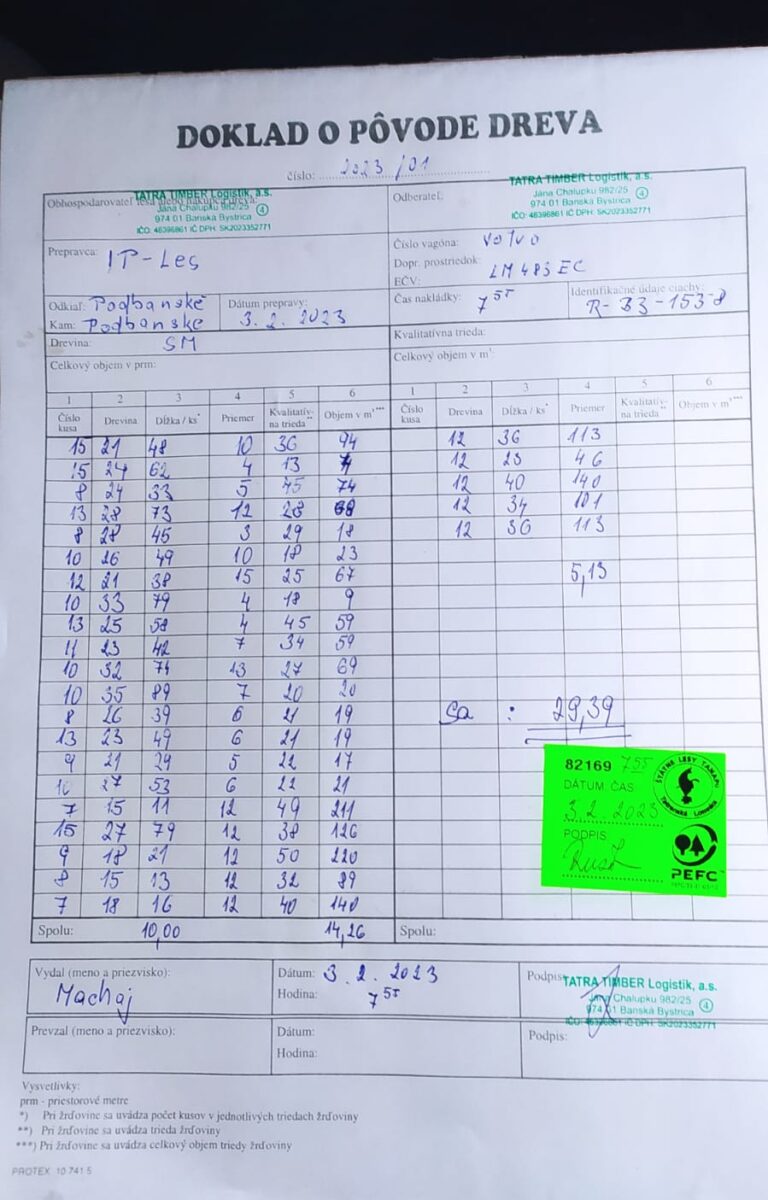 DOKLAD O PÔVODE DREVA
číslo: 2023/01
Obhospodarovateľ lesa alebo nákupca dreva:
TATRA TIMBER Logistik, a.s.
Jána Chalupku 982/25
974 01 Banská Bystrica
IČO: 46396861 IČ DPH: SK2023352771
4
Odberateľ:
TATRA TIMBER Logistik, a.s.
Jána Chalupku 982/25
974 01 Banská Bystrica
IČO: 46396861 IČ DPH: SK2023352771
4
Prepravca: IP-Les
Číslo vagóna: Volvo
Dopr. prostriedok:
EČV: LM 483 EC
Odkiaľ: Podbanské
Kam: Podbanske
Dátum prepravy: 3. 2. 2023
Čas nakládky: 7 55
Identifikačné údaje ciachy: R-33-153-8
Drevina: SM
Kvalitatívna trieda:
Celkový objem v prm:
Celkový objem v m³:
1 2 3 4 5 6 1 2 3 4 5 6
Číslo kusa Drevina Dĺžka / ks* Priemer Kvalitatív-na trieda** Objem v m³*** Číslo kusa Drevina Dĺžka / ks* Priemer Kvalitatív-na trieda** Objem v m³***
15 21 48 10 36 94 12 36 113
15 24 62 4 13 12 23 46
8 24 33 5 45 74 12 40 140
13 28 73 12 28 12 34 101
8 28 45 3 29 18 12 36 113
10 26 49 10 18 23
12 21 38 15 25 67 5,13
10 33 79 4 18 9
13 25 58 4 45 59
11 23 42 7 34 59
10 32 74 13 27 69
10 35 89 7 20 20
8 26 39 6 21 19 Sa : 29,39
13 23 49 6 21 19
9 21 29 5 22 17
10 27 53 6 22 21
7 15 11 12 49 211
15 27 79 12 38 126
9 18 21 12 50 220
8 15 13 12 32 89
7 18 16 12 40 140
Spolu: 10,00 14,26 Spolu:
82169 7 55
DÁTUM ČAS
3. 2. 2023
PODPIS
ŠTÁTNE LESY TANAPU
Tatranská Lomnica
PEFC
Vydal (meno a priezvisko):
Machaj
Dátum: 3. 2. 2023
Hodina: 7 55
Podpis:
TATRA TIMBER Logistik, a.s.
Jána Chalupku 982/25
974 01 Banská Bystrica
IČO: 46396861 IČ DPH: SK2023352771
4
Prevzal (meno a priezvisko):
Dátum:
Hodina:
Podpis:
Vysvetlivky:
prm - priestorové metre
*) Pri žrďovine sa uvádza počet kusov v jednotlivých triedach žrďoviny
**) Pri žrďovine sa uvádza trieda žrďoviny
***) Pri žrďovine sa uvádza celkový objem triedy žrďoviny
PROTEX 10 741 5